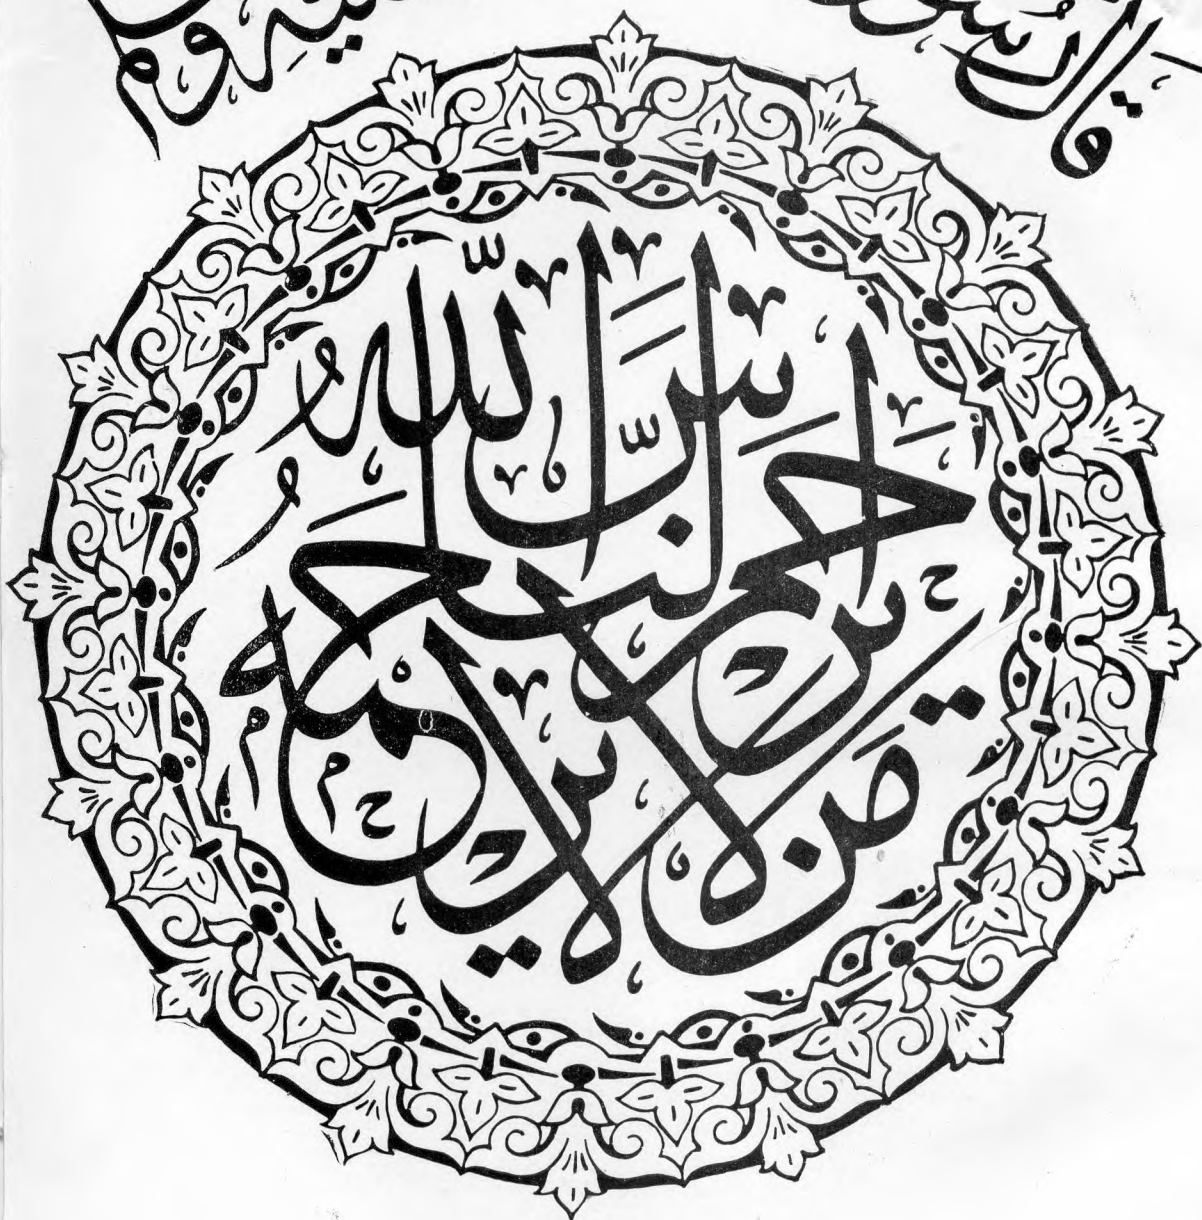 قال رسول
من لا يرحم الناس لا يرحمه الله